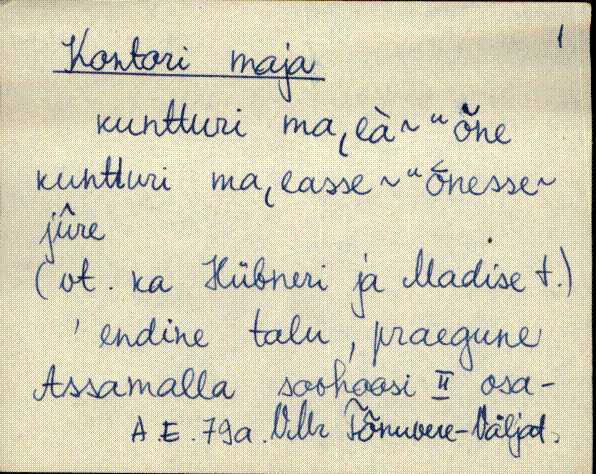 1
Kontori maja
kuntturi ma,eà ~ " õne
kuntturi ma,easse ~ " õnesse ~
jûre
(vt. ka Hübneri ja Madise t.)
' endine talu, praegune
Assamalla sovhoosi II osa-
A.E. 79a. VMr Tõnuvere-Väljat.